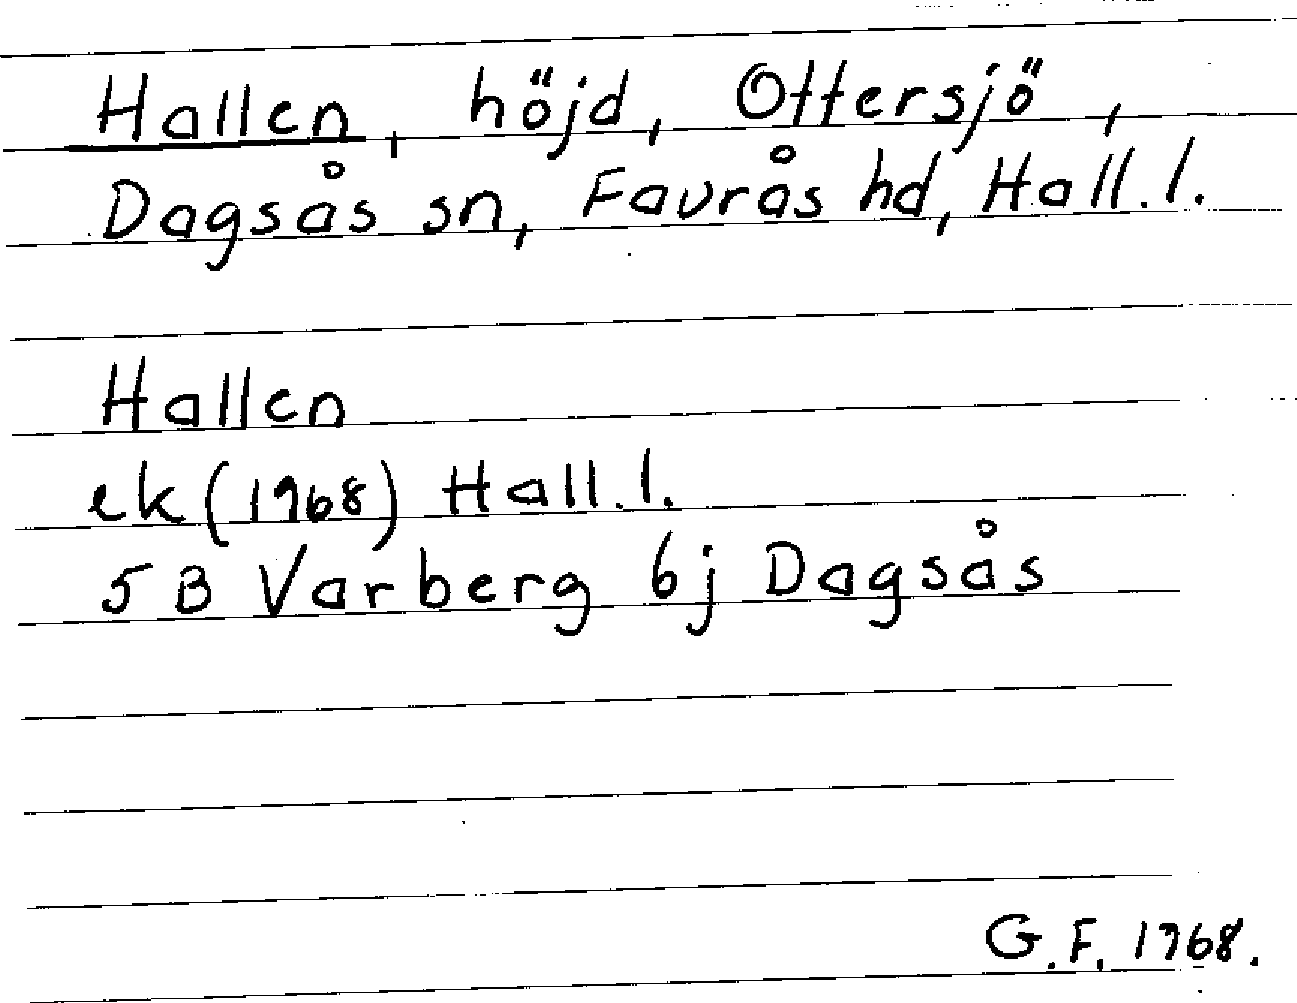 Hallen, höjd, Ottersjö,
Dagsås sn, Faurås hd, Hall. l.
Hallen
ek (1968) Hall. l.
5 B Varberg 6j Dagsås
G.F. 1968.